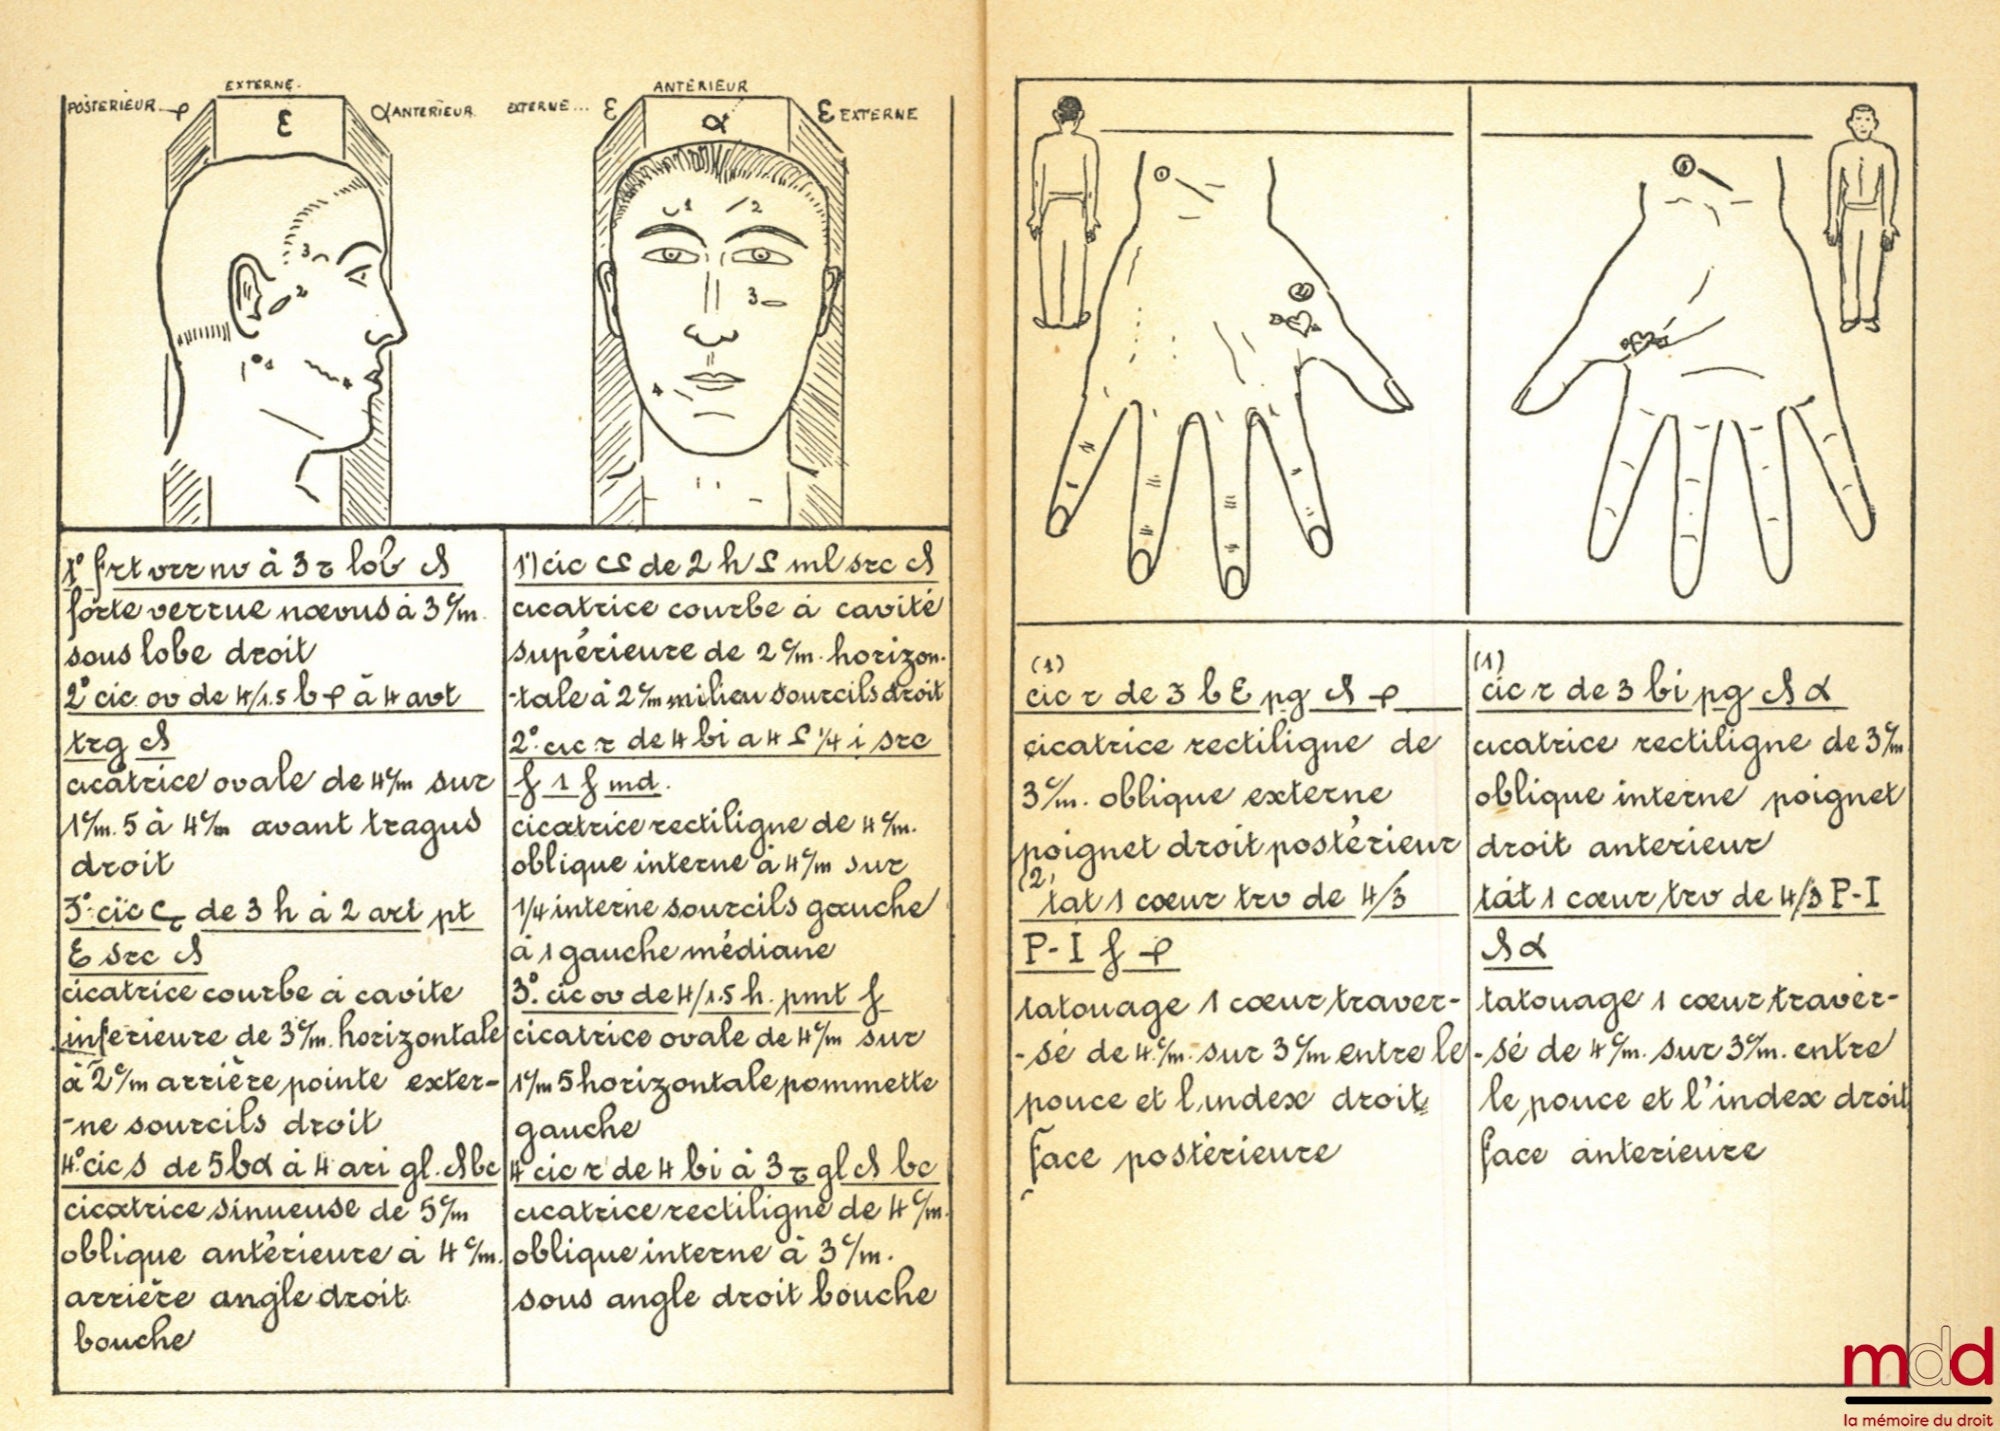 EXTERNE.
POSTERIEUR φ
ε
α ANTERIEUR
3
2
1
4
ANTÉRIEUR
EXTERNE... ε
α
ε EXTERNE
1
2
3
4
1° frt ver nv à 3 τ lob
forte verrue nœvus à 3 c/m.
sous lobe droit
2° cic ov de 4/1.5 b φ à 4 avt
trg
cicatrice ovale de 4 c/m sur
1 c/m. 5 à 4 c/m avant tragus
droit
3° cic de 3 h à 2 ari pt
ε src
cicatrice courbe à cavite
inferieure de 3 c/m. horizontale
à 2 c/m arrière pointe exter-
-ne sourcils droit
4° cic s de 5 b α à 4 ari gl. bc
cicatrice sinueuse de 5 c/m
oblique antérieure à 4 c/m.
arrière angle droit
bouche
1°) cic de 2 h ml src
cicatrice courbe à cavité
supérieure de 2 c/m. horizon-
-tale à 2 c/m milieu sourcils droit
2° cic r de 4 bi a 4 1/4 i src
f 1 f md.
cicatrice rectiligne de 4 c/m.
oblique interne à 4 c/m sur
1/4 interne sourcils gauche
à 1 gauche médiane
3°. cic ov de 4/1.5 h. pmt f
cicatrice ovale de 4 c/m sur
1 c/m 5 horizontale pommette
gauche
4 cic r de 4 bi à 3 τ gl bc
cicatrice rectiligne de 4 c/m.
oblique interne à 3 c/m.
sous angle droit bouche
1
2
1
(1)
cic r de 3 b ε pg φ
cicatrice rectiligne de
3 c/m. oblique externe
poignet droit postérieur
(2)
tat 1 cœur trv de 4/3
P-I f φ
tatouage 1 cœur traver-
-sé de 4 c/m. sur 3 c/m entre le
pouce et l'index droit
face postérieure
(1)
cic r de 3 bi pg α
cicatrice rectiligne de 3 c/m
oblique interne poignet
droit anterieur
tat 1 cœur trv de 4/3 P-I
α
tatouage 1 cœur traver-
-sé de 4 c/m. sur 3 c/m. entre
le pouce et l'index droit
face anterieure
mdd
la mémoire du droit